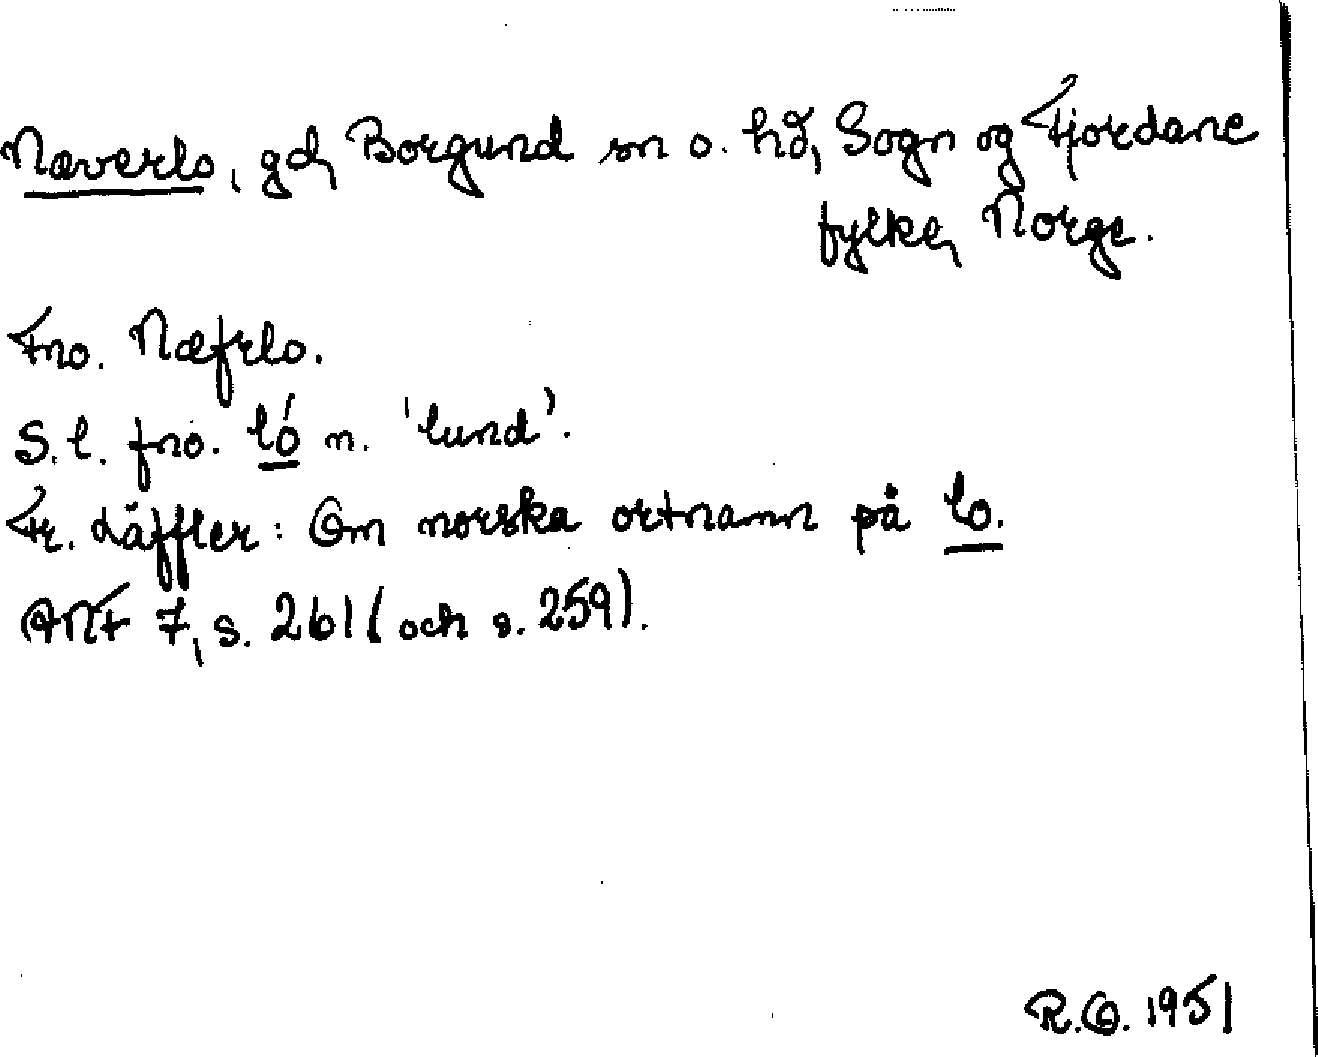 Næverlo, gd, Borgund sn o. hd, Sogn og Fjordane
fylke, Norge.
Fno. Næfrlo.
S. l. fno. ló n. 'lund'.
Fr. Läffler: Om norska ortnamn på lo.
ANF 7, s. 261 (och s. 259).
R.O. 1951